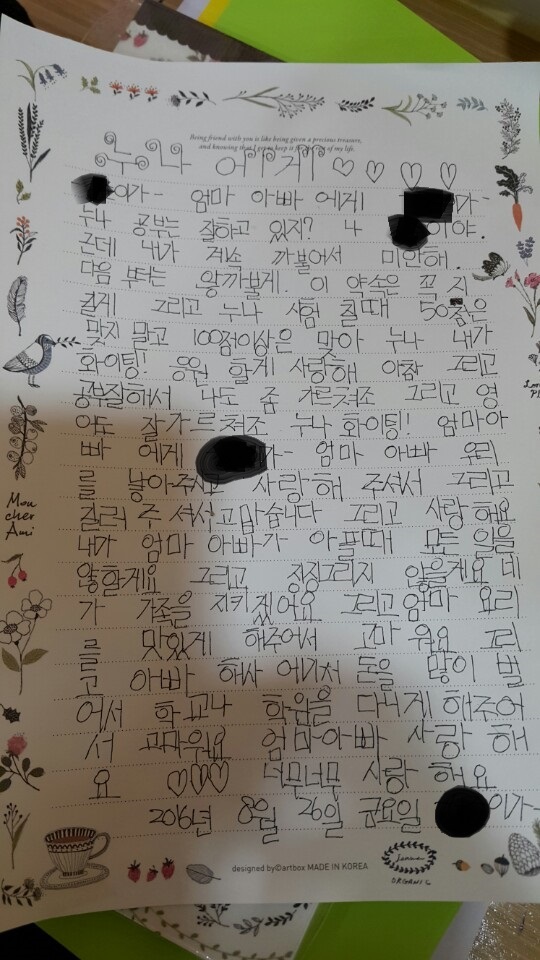 Being friend with you is like being given a precious treasure,
and knowing that I get to keep it for the rest of my life.
누나 에게 ♡ ♡ ♡ ♡
이가- 엄마 아빠 에게 가-
누나 공부는 잘하고 있지? 나 이야.
근데 내가 계속 까불어서 미안해.
다음 부터는 않까불게. 이 약속은 꼭 지
킬게 그리고 누나 시험 칠때 50점은
맞지 말고 100점이상은 맞아 누나 내가
화이팅! 응원 할게 사랑해 아참 그리고
공부잘해서 나도 좀 가르쳐조 그리고 영
어도 잘가르쳐조 누나 화이팅! 엄마아
빠 에게 가- 엄마 아빠 우리
를 낳아주시고 사랑해 주셔서 그리고
길러 주셔서고맙습니다 그리고 사랑해요
내가 엄마 아빠가 아플때 모든 일을
않할게요 그리고 징징그리지 않을게요 네
가 가족을 지키겠어요 그리고엄마 요리
를 맛있게 해주어서 고마워요 그리
고 아빠 회사 에가서 돈을 많이 벌
어서 학교나 학원을 다니게 해주어
서 고마워요 엄마아빠 사랑해
요 ♡♡♡ 너무너무 사랑해요
2016년 8월 26일 금요일 이가-
Mon
cher
Ami
designed by©artbox MADE IN KOREA
ORGANIC